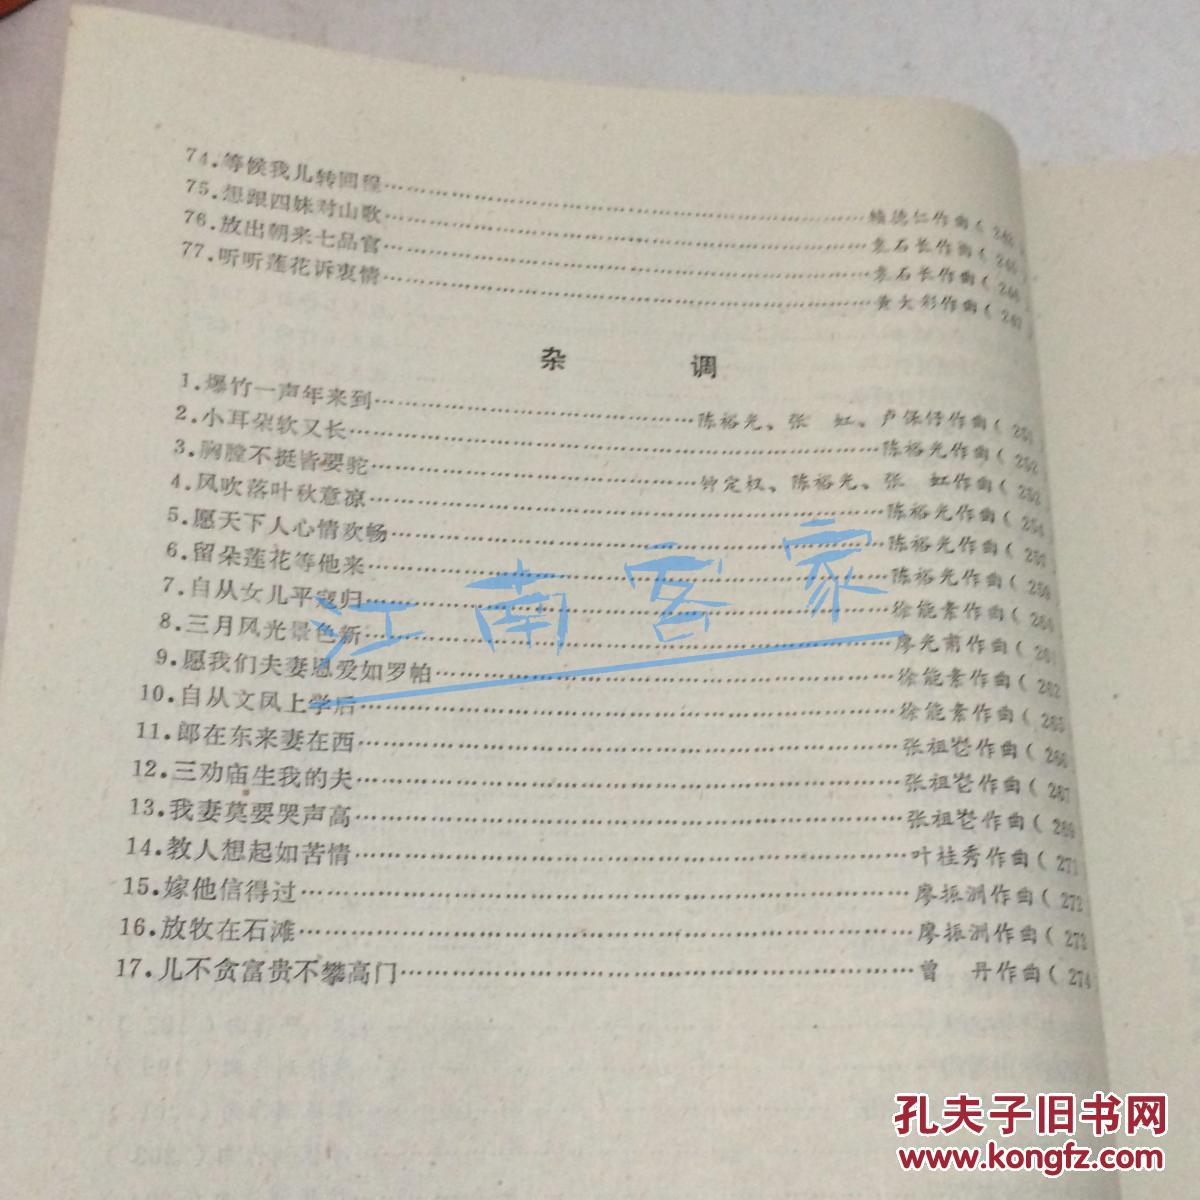 74.等候我儿转回程……赖德仁作曲(
75.想跟四妹对山歌……袁石长作曲(
76.放出朝来七品官……袁石长作曲(
77.听听莲花诉衷情……黄大彩作曲(
杂 调
1.爆竹一声年来到……陈裕光、张 虹、卢保仔作曲(
2.小耳朵软又长……陈裕光作曲( 252
3.胸膛不挺背要驼……钟定权、陈裕光、张 虹作曲( 252
4.风吹落叶秋意凉……陈裕光作曲( 254
5.愿天下人心情欢畅……陈裕光作曲(
6.留朵莲花等他来……陈裕光作曲(
7.自从女儿平寇归……徐能素作曲( 260
8.三月风光景色新……廖光前作曲( 261
9.愿我们夫妻恩爱如罗帕……徐能素作曲( 262
10.自从文凤上学后……徐能素作曲( 265
11.郎在东来妻在西……张祖 作曲( 266
12.三劝庙生我的夫……张祖 作曲( 267
13.我妻莫要哭声高……张祖 作曲( 269
14.教人想起如苦情……叶桂秀作曲( 271
15.嫁他信得过……廖振渊作曲( 272
16.放牧在石滩……廖振渊作曲( 273
17.儿不贪富贵不攀高门……曾 丹作曲( 274
江南客家
孔夫子旧书网
www.kongfz.com